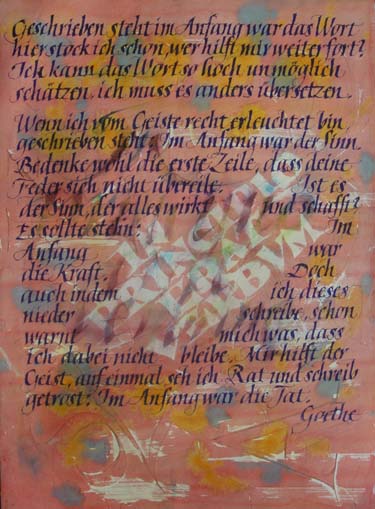 Geschrieben steht im Anfang war das Wort
hier stock ich schon, wer hilft mir weiter fort?
Ich kann das Wort so hoch unmöglich
schätzen, ich muss es anders übersetzen.
Wenn ich vom Geiste recht erleuchtet bin
geschrieben steht: Im Anfang war der Sinn.
Bedenke wohl die erste Zeile, dass deine
Feder sich nicht übereile. Ist es
der Sinn, der alles wirkt und schafft?
Es sollte stehn: Im
Anfang war
die Kraft. Doch
auch indem ich dieses
nieder schreibe, schon
warnt mich was, dass
ich dabei nicht bleibe. Mir hilft der
Geist, auf einmal seh ich Rat und schreib
getrost: Im Anfang war die Tat.
Goethe
IN
PRINCIPIO
ERAT
VERBVM